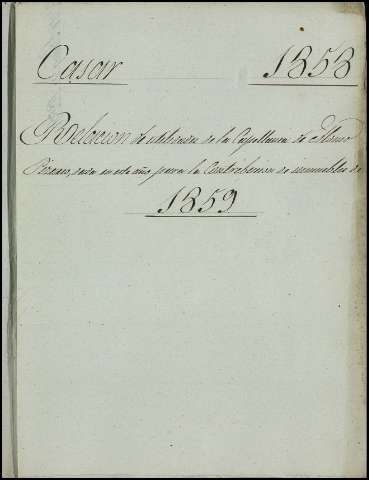 Casar 1858
Relacion de utilidades de la Capellania de Alonso
Pizarro, dada en este año para la Contribucion de inmuebles de
1859